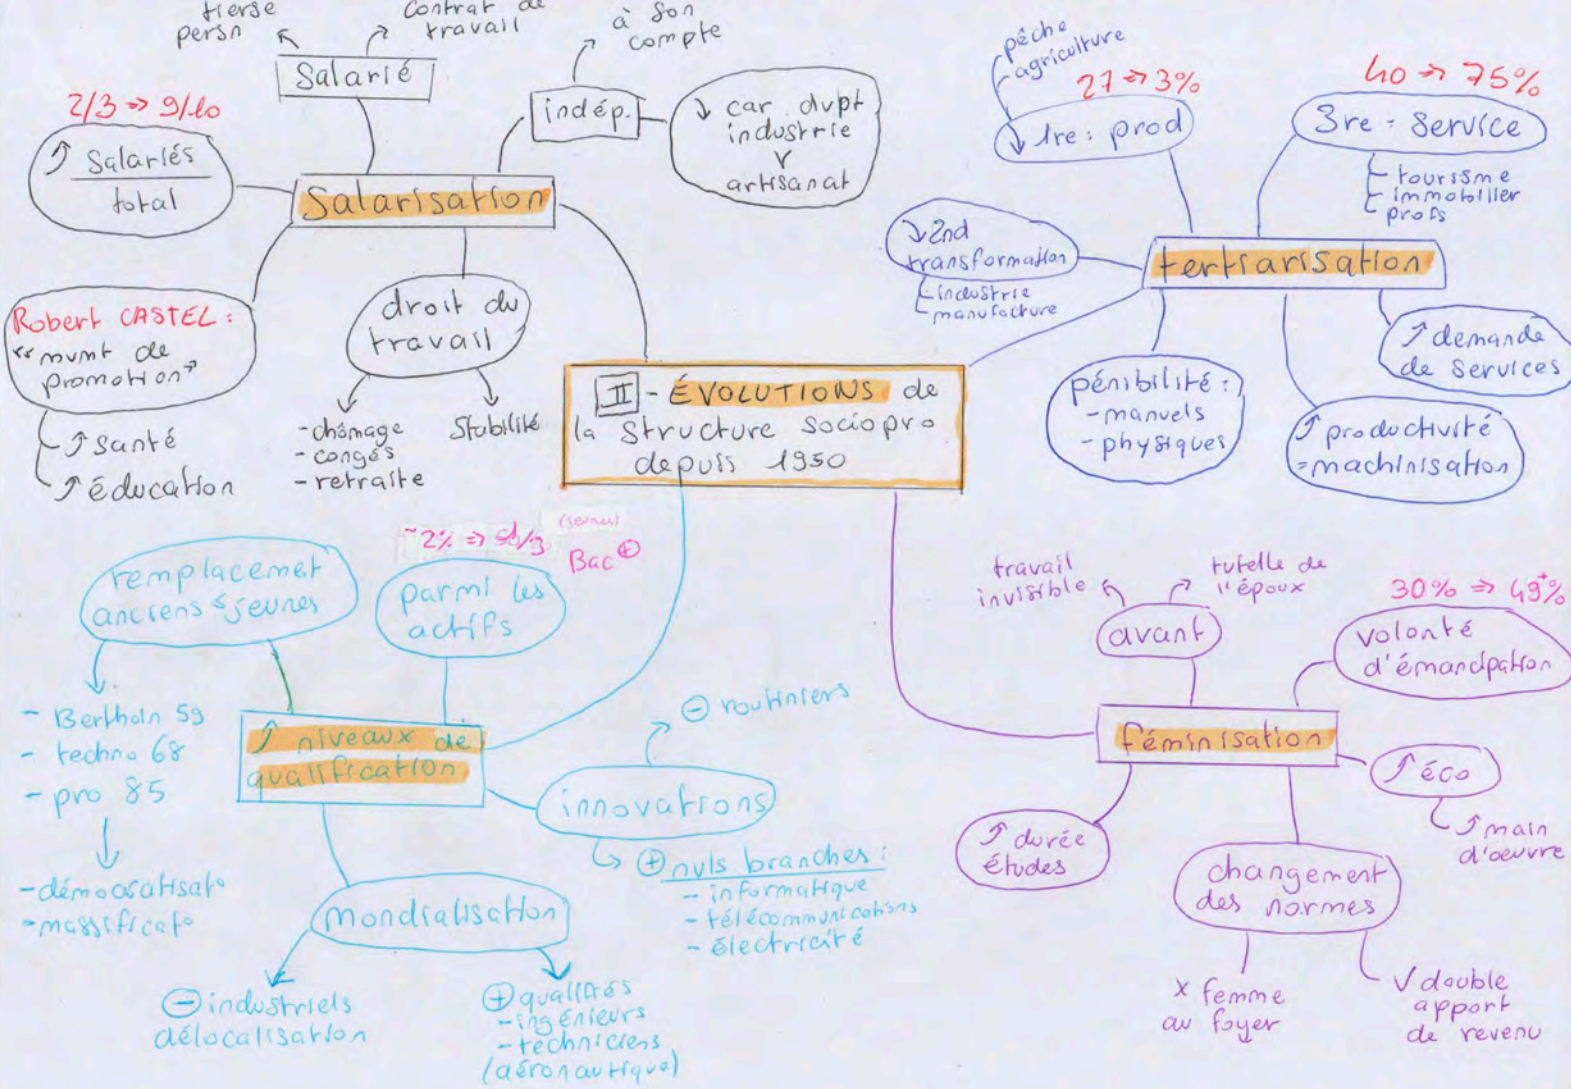 tierse
persn
contrat de
travail
à son
compte
Salarié
indép.
↓ car dvpt
industrie
artisanat
2/3 => 9/10
↗ Salariés
total
Salarisation
Robert CASTEL :
"mvmt de
promotion"
↗ santé
↗ éducation
droit du
travail
- chômage
- congés
- retraite
Stabilité
pêche
agriculture
27 => 3%
↓ 1re : prod
40 => 75%
3re = Service
tourisme
immobilier
profs
↓ 2nd
transformation
industrie
manufacture
tertiarisation
pénibilité :
- manuels
- physiques
↗ demande
de services
↗ productivité
= machinisation
II - ÉVOLUTIONS de
la structure sociopro
depuis 1950
remplacemet
anciens ≤ jeunes
- Berthoin 59
- techno 68
- pro 85
- démocratisat°
- massificat°
~2% =>
(jeunes)
Bac ⊕
parmi les
actifs
↗ niveaux de
qualification
⊖ routiniers
innovations
⊕ nvls branches :
- informatique
- télécommunications
- électricité
mondialisation
⊖ industriels
délocalisation
⊕ qualifiés
- ingénieurs
- techniciens
(aéronautique)
travail
invisible
tutelle de
l'époux
avant
30% => 49%
volonté
d'émancipation
féminisation
↗ éco
↗ main
d'oeuvre
↗ durée
études
changement
des normes
x femme
au foyer
√ double
apport
de revenu